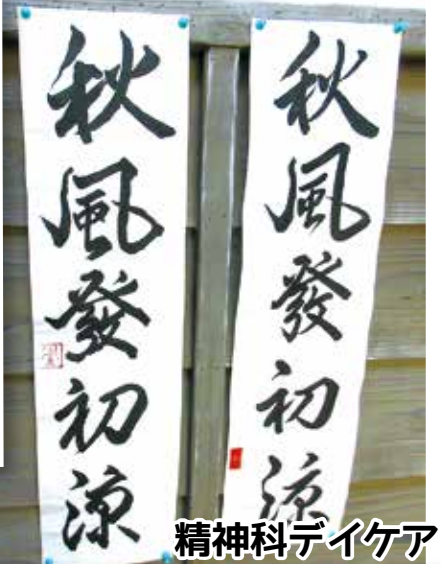 秋風發初涼
秋風發初涼
精神科デイケア